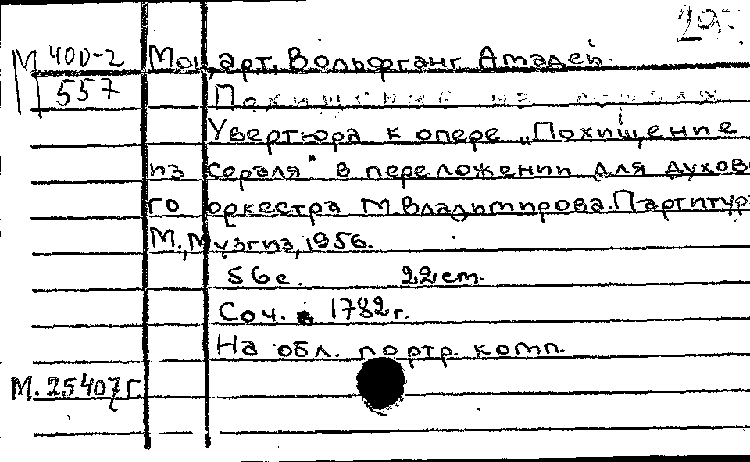 29.
М 400-2
557
Моцарт, Вольфганг Амадей.
Похищение из сераля
Увертюра к опере „Похищение
из сераля" в переложении для духово
го оркестра М. Владимирова. Партитура
М., Музгиз, 1956.
56 с. 22 см.
Соч. в 1782 г.
На обл. портр. комп.
М. 25407 г